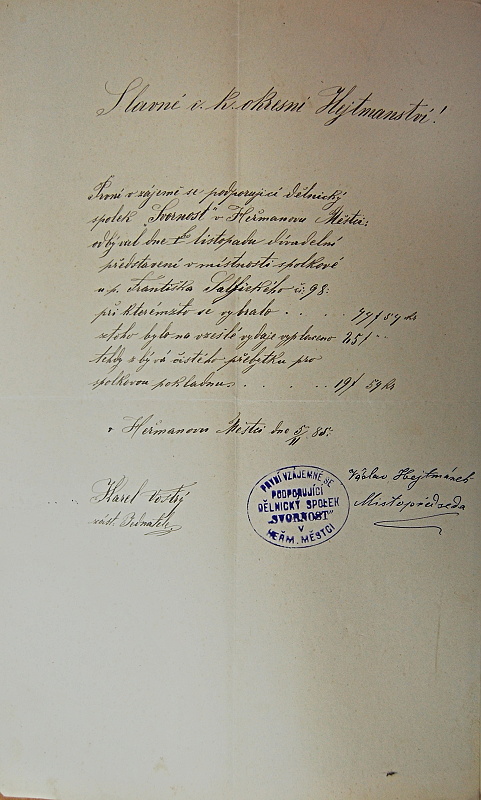 Slavné c. k. okresní Hejtmanství!
První vzájemě se podporující dělnický
spolek "Svornost" v Heřmanovu Městci:
odbýval dne 1ho listopadu divadelní
představení v místnosti spolkové
u p. Františka č: 98:
při kterémžto se vybralo . . . . .
z toho bylo na vzešlé vydaje vyplaceno 25 f
tehdy zbývá čistého přebytku pro
spolkovou pokladnu . . . . . . . 19 f 59 kr
v Heřmanovu Městci dne 5/11 85.
Karel Vostrý
zást. Jednatel
PRVNÍ VZÁJEMNĚ SE
PODPORUJÍCÍ
DĚLNICKÝ SPOLEK
„SVORNOST"
V
HEŘM. MĚSTCI
Václav Hejtmánek
Místopředseda